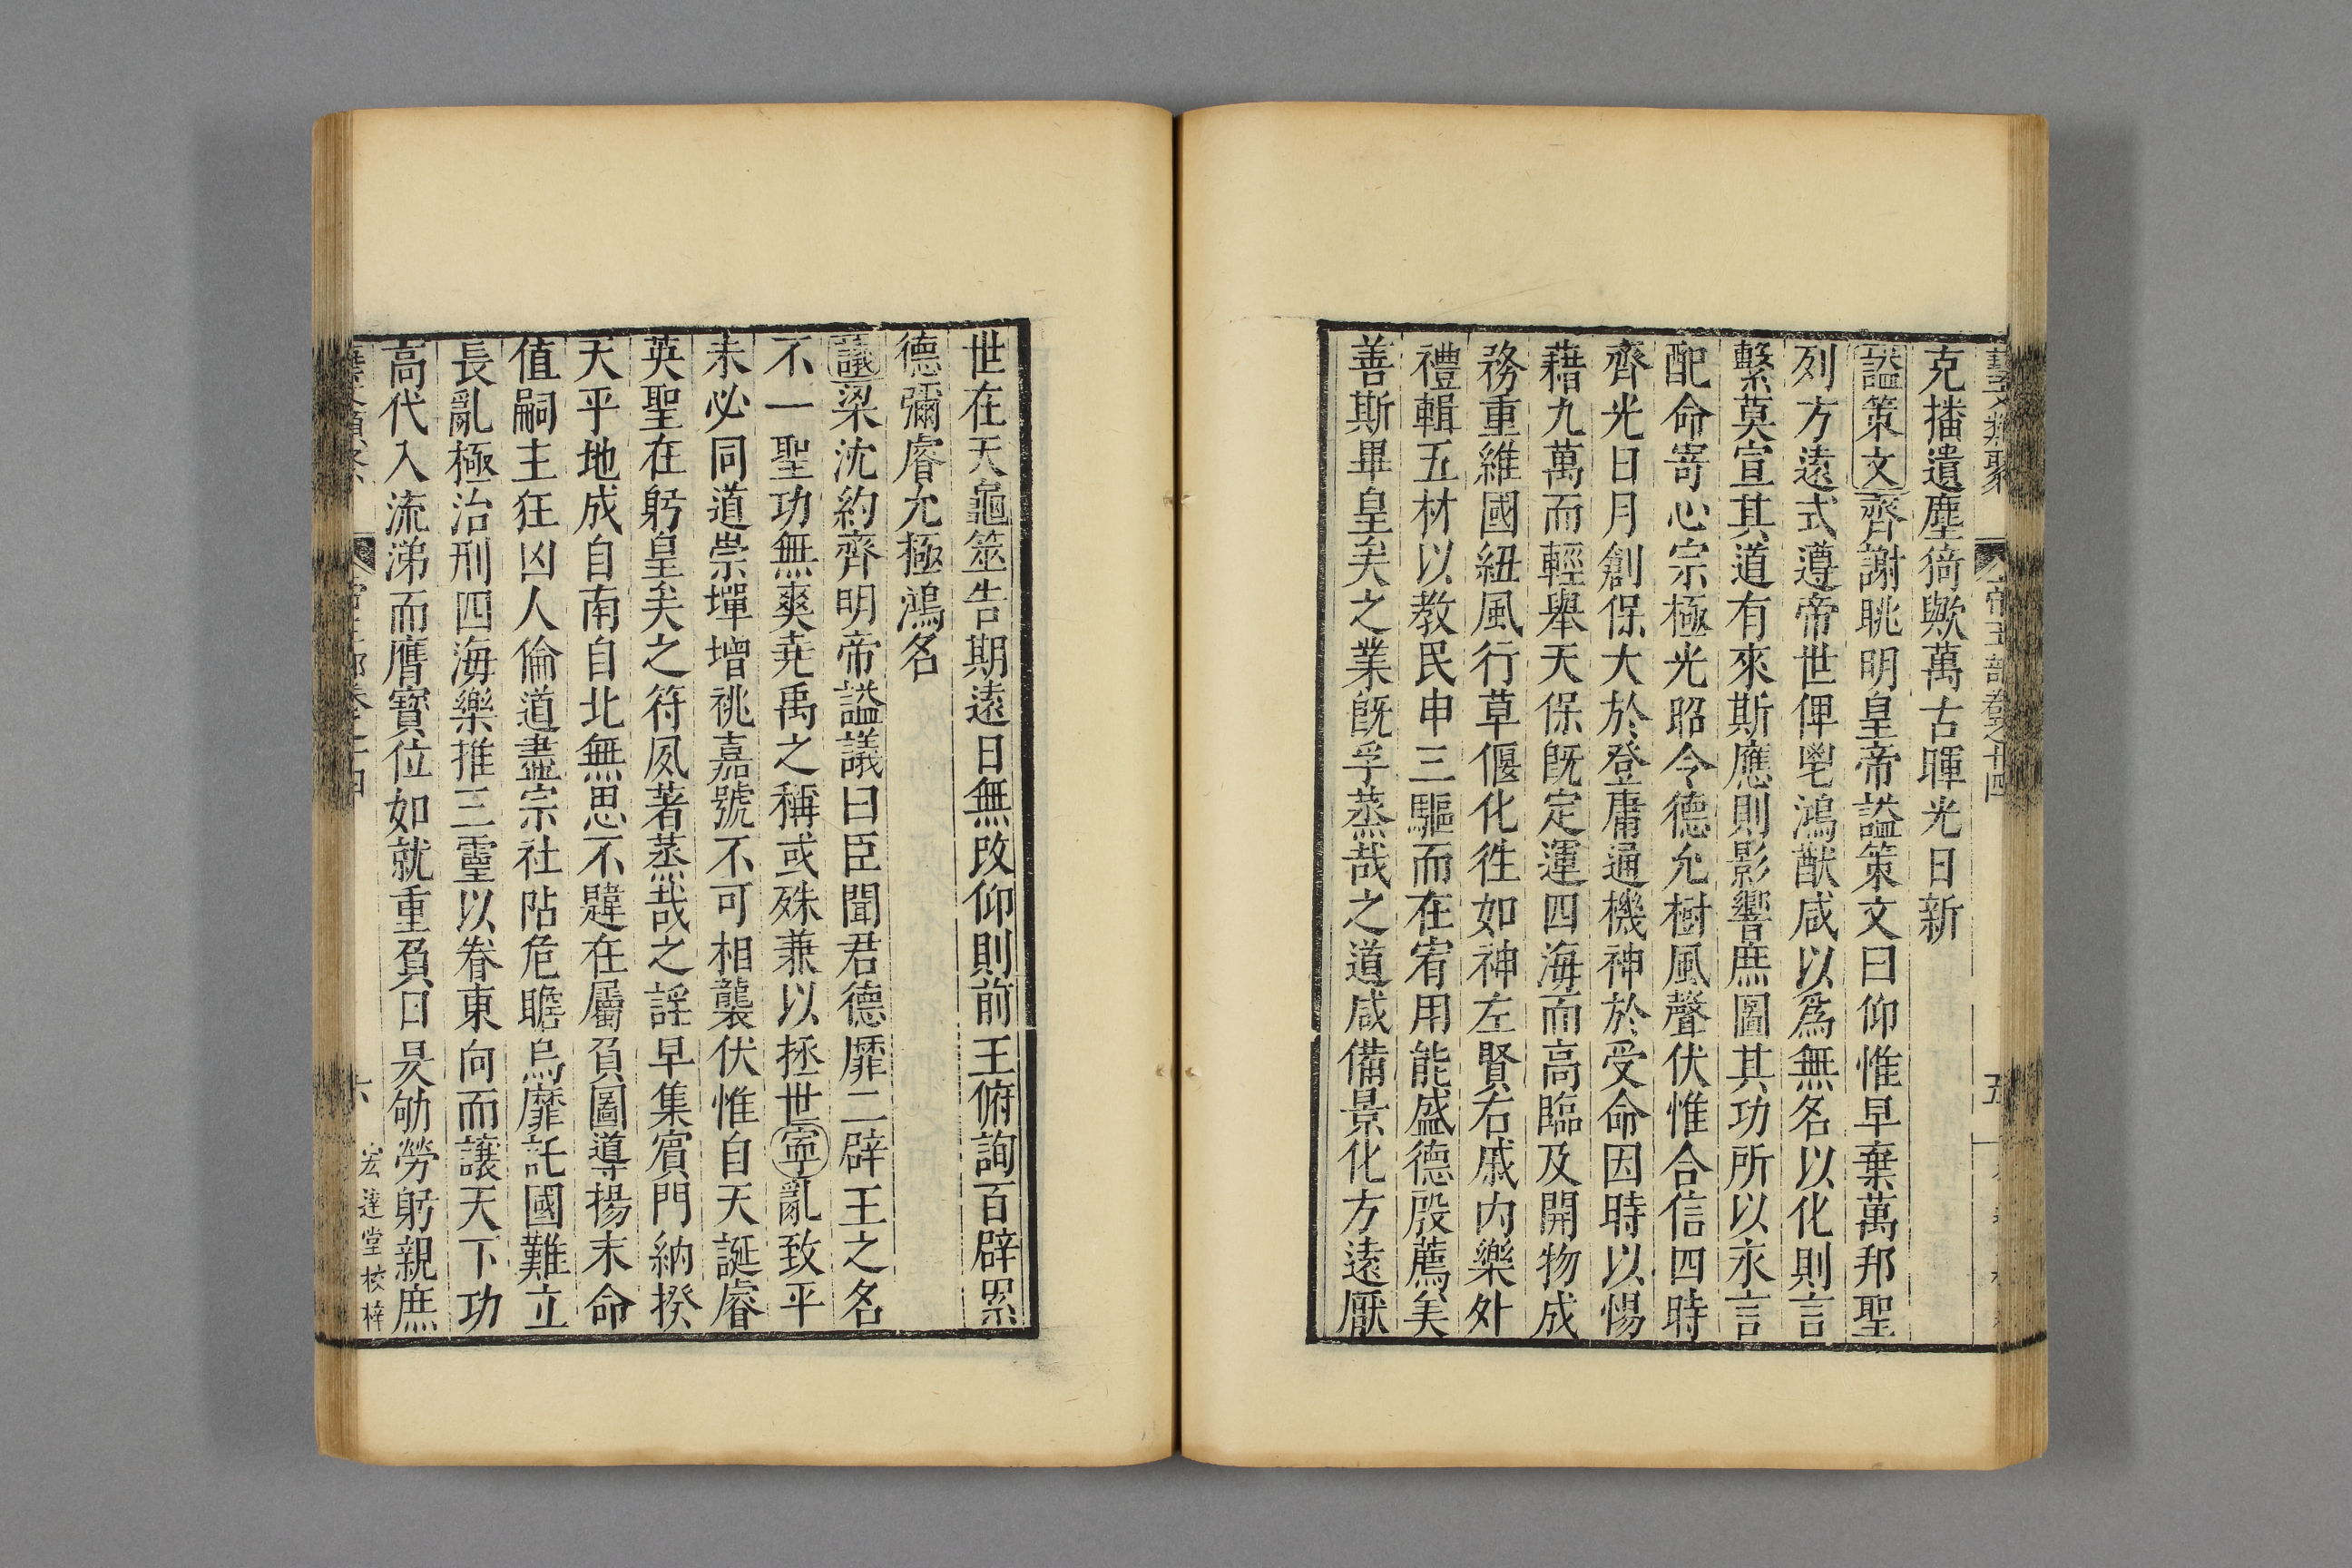 藝文類聚 帝王部卷之十四 五
克播遺塵猗歟萬古暉光日新
謚策文齊謝朓明皇帝謚策文曰仰惟早棄萬邦聖
列方遠式遵帝世俾鬯鴻猷咸以爲無名以化則言
繫莫宣其道有來斯應則影響庶圖其功所以永言
配命寄心宗極光昭令德允樹風聲伏惟合信四時
齊光日月創保大於登庸通機神於受命因時以惕
藉九萬而輕舉天保旣定運四海而高臨及開物成
務重維國紐風行草偃化徃如神左賢右戚內樂外
禮輯五材以教民申三驅而在宥用能盛德殷薦矣
善斯畢皇矣之業旣孚蒸哉之道咸備景化方遠厭
世在天龜筮告期遠日無改仰則前王俯詢百辟累
德彌睿允極鴻名
議梁沈約齊明帝謚議曰臣聞君德靡二辟王之名
不一聖功無爽堯禹之稱或殊兼以拯世寧亂致平
未必同道崇墠增祧嘉號不可相襲伏惟自天誕睿
英聖在躬皇矣之符夙著蒸哉之謠早集賓門納揆
天平地成自南自北無思不韙在屬負圖導揚末命
值嗣主狂凶人倫道盡宗社阽危瞻烏靡託國難立
長亂極治刑四海樂推三靈以眷東向而讓天下功
高代入流涕而膺寶位如就重負日昃劬勞躬親庶
六 宏達堂校梓